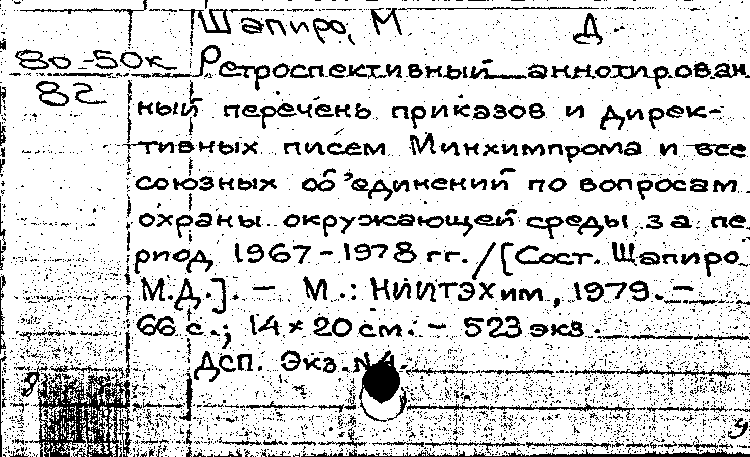 Шапиро, М Д
80-50к Ретроспективный аннотирован
82 ный перечень приказов и дирек-
тивных писем Минхимпрома и все
союзных об'единений по вопросам
охраны окружающей среды за пе
риод 1967-1978 гг. / [Сост. Шапиро
М.Д.]. - М.: НИИТЭХим, 1979. -
66 с.; 14 × 20 см. - 523 экз.
Дсп. Экз.